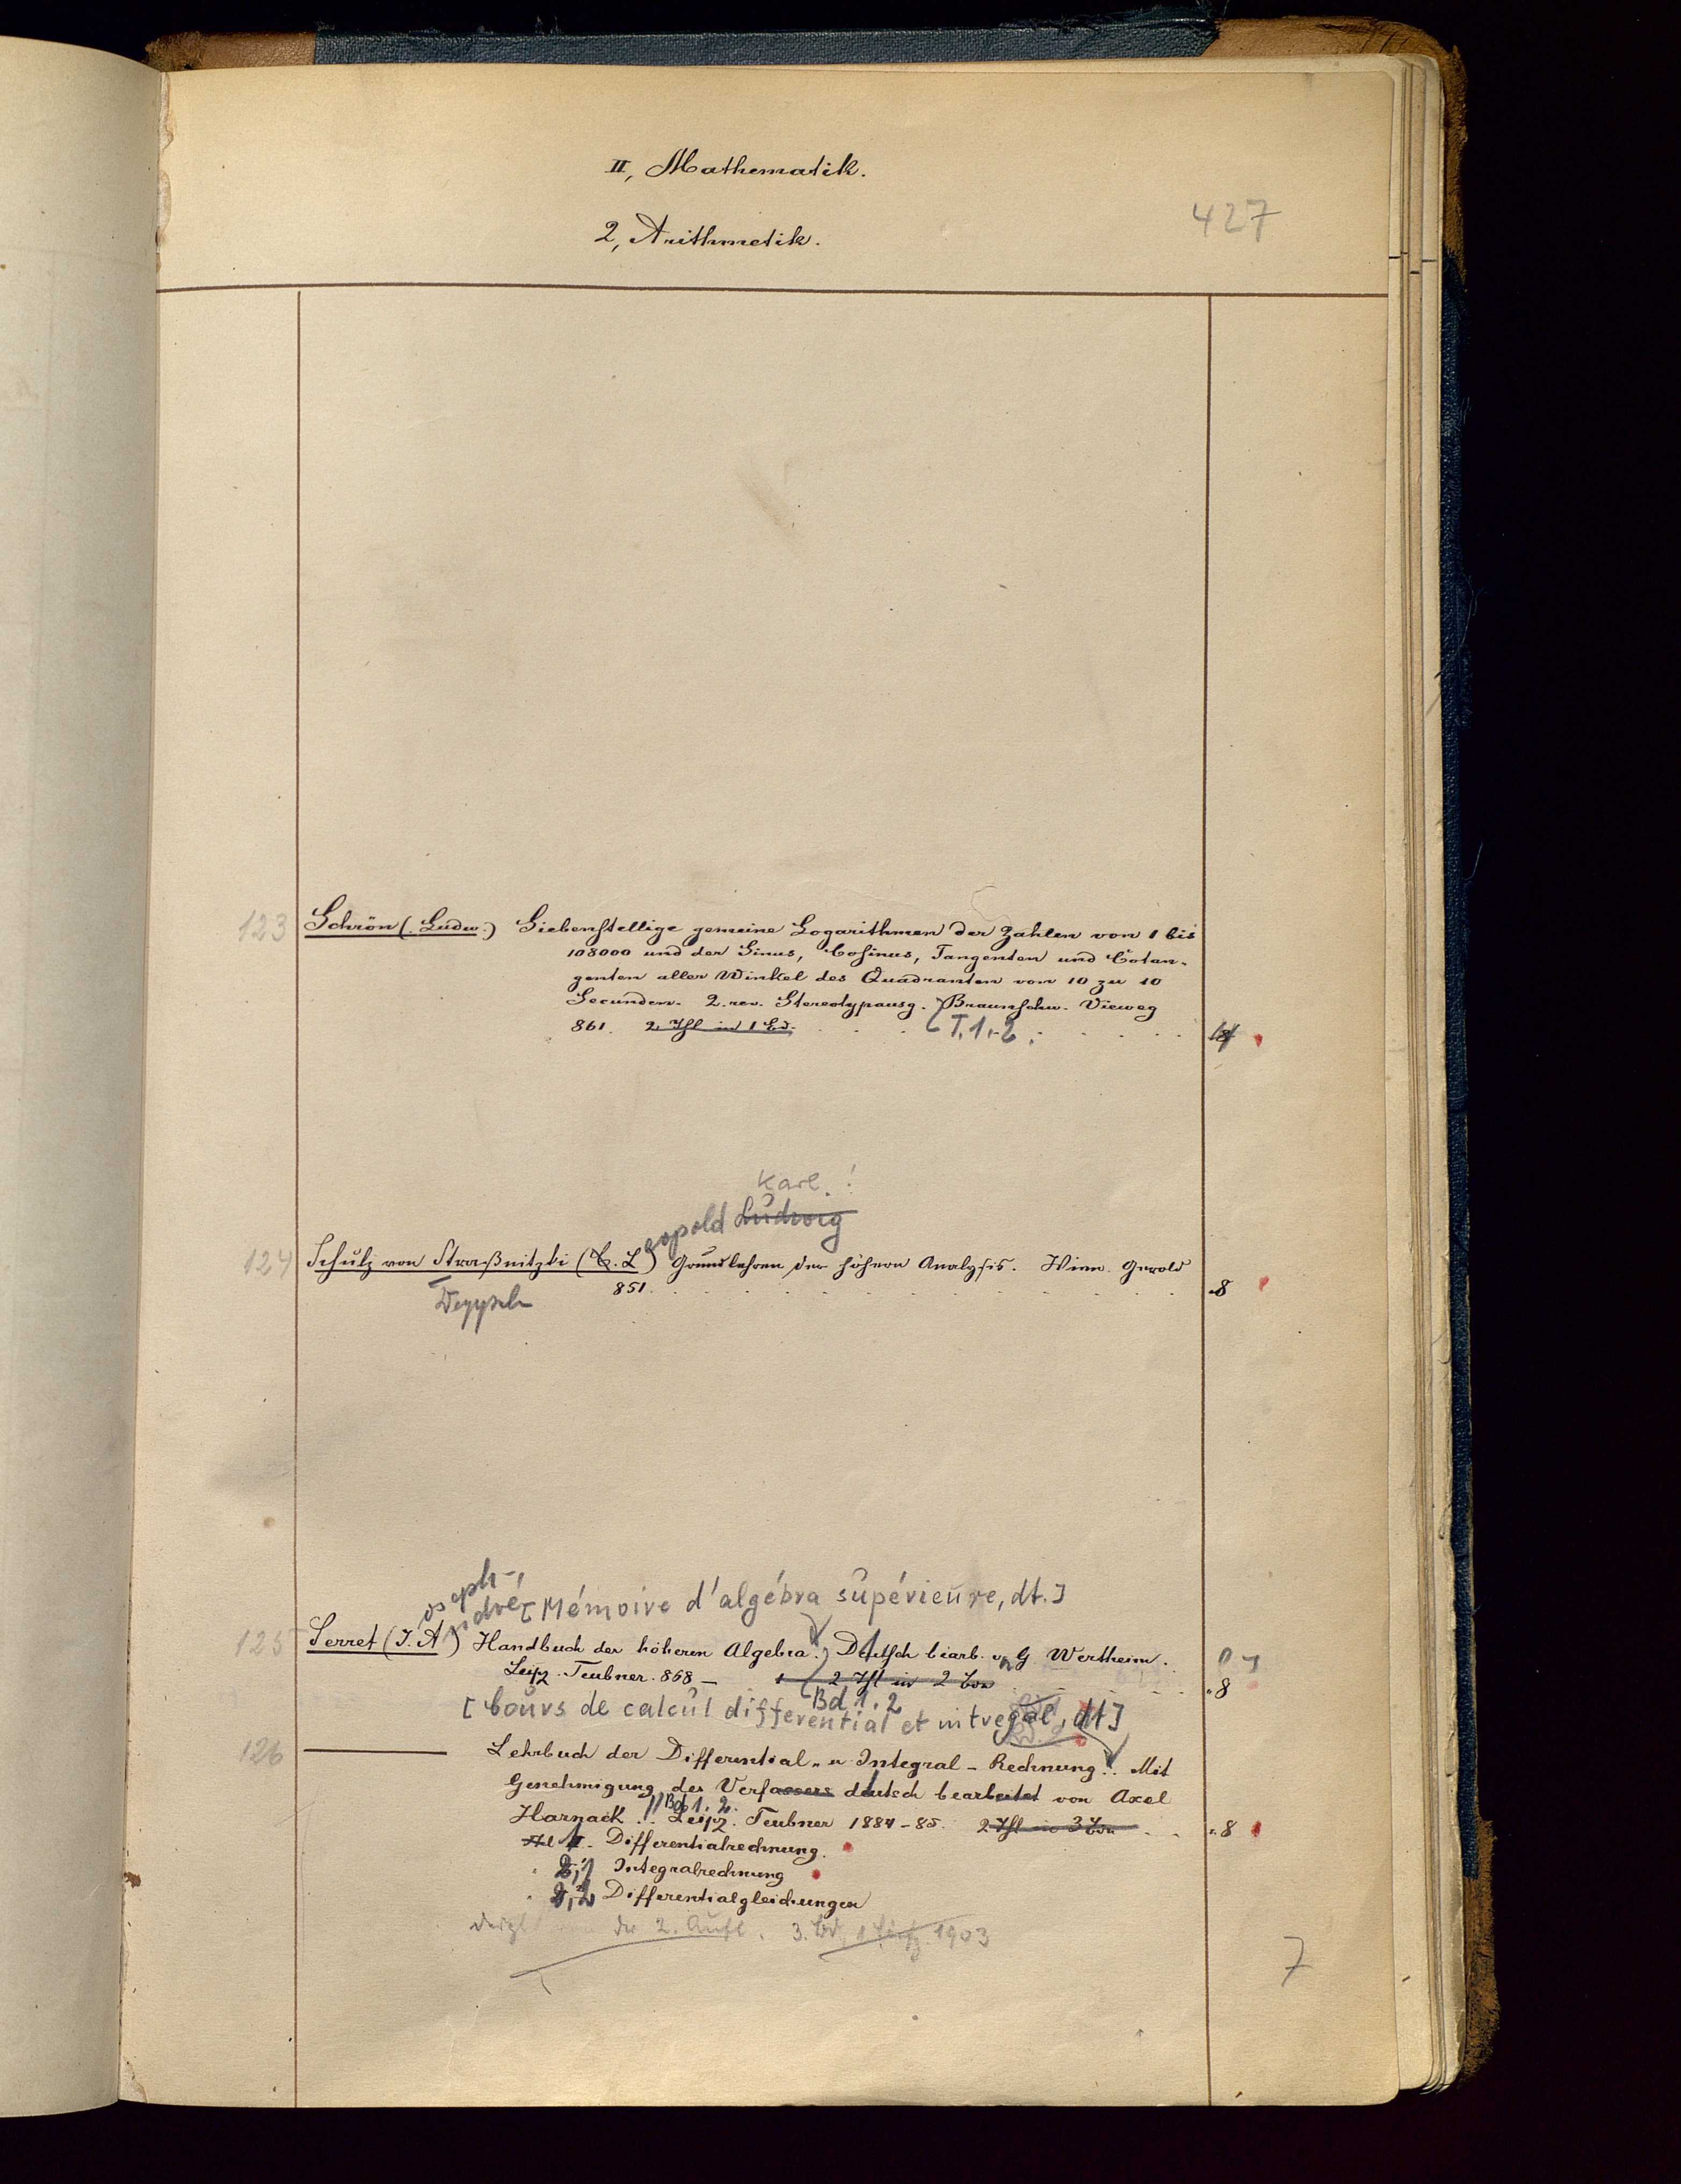 II, Mathematik.
427
2, Arithmetik.
123 Schrön (Ludw.) Siebenstellige gemeine Logarithmen der Zahlen von 1 bis
108000 und der Sinus, Cosinus, Tangenten und Cotan-
genten aller Winkel des Quadranten von 10 zu 10
Secunden. 2. rev. Stereotypausg. Braunschw. Vieweg
861. 2 Thl in 1 Bd. T. 1. 2.
Karl !
eopold Ludwig
124 Schulz von Straßnitzki (C. L) Grundlehren der höhern Analysis. Wien Gerold
851. 8
oseph-,
ndré [Mémoire d'algébra supérieure, dt.]
125 Serret (J. A) Handbuch der höheren Algebra. Deutsch bearb. v. G Wertheim.
Leipz. Teubner. 868 - 2 Thl in 2 Bdn 8
Bd 1. 2
[Cours de calcul differential et intregal, dt]
126 ——— Lehrbuch der Differential- u Integral-Rechnung. Mit
Genehmigung des Verfassers deutsch bearbeitet von Axel
Bd 1. 2.
Harnack. Leipz. Teubner 1884-85. 2 Thl in 3 Bdn 8
1 Differentialrechnung.
2,1 Integralrechnung
2,2 Differentialgleichungen
der 2. Aufl. 3. Bd, 1903
7